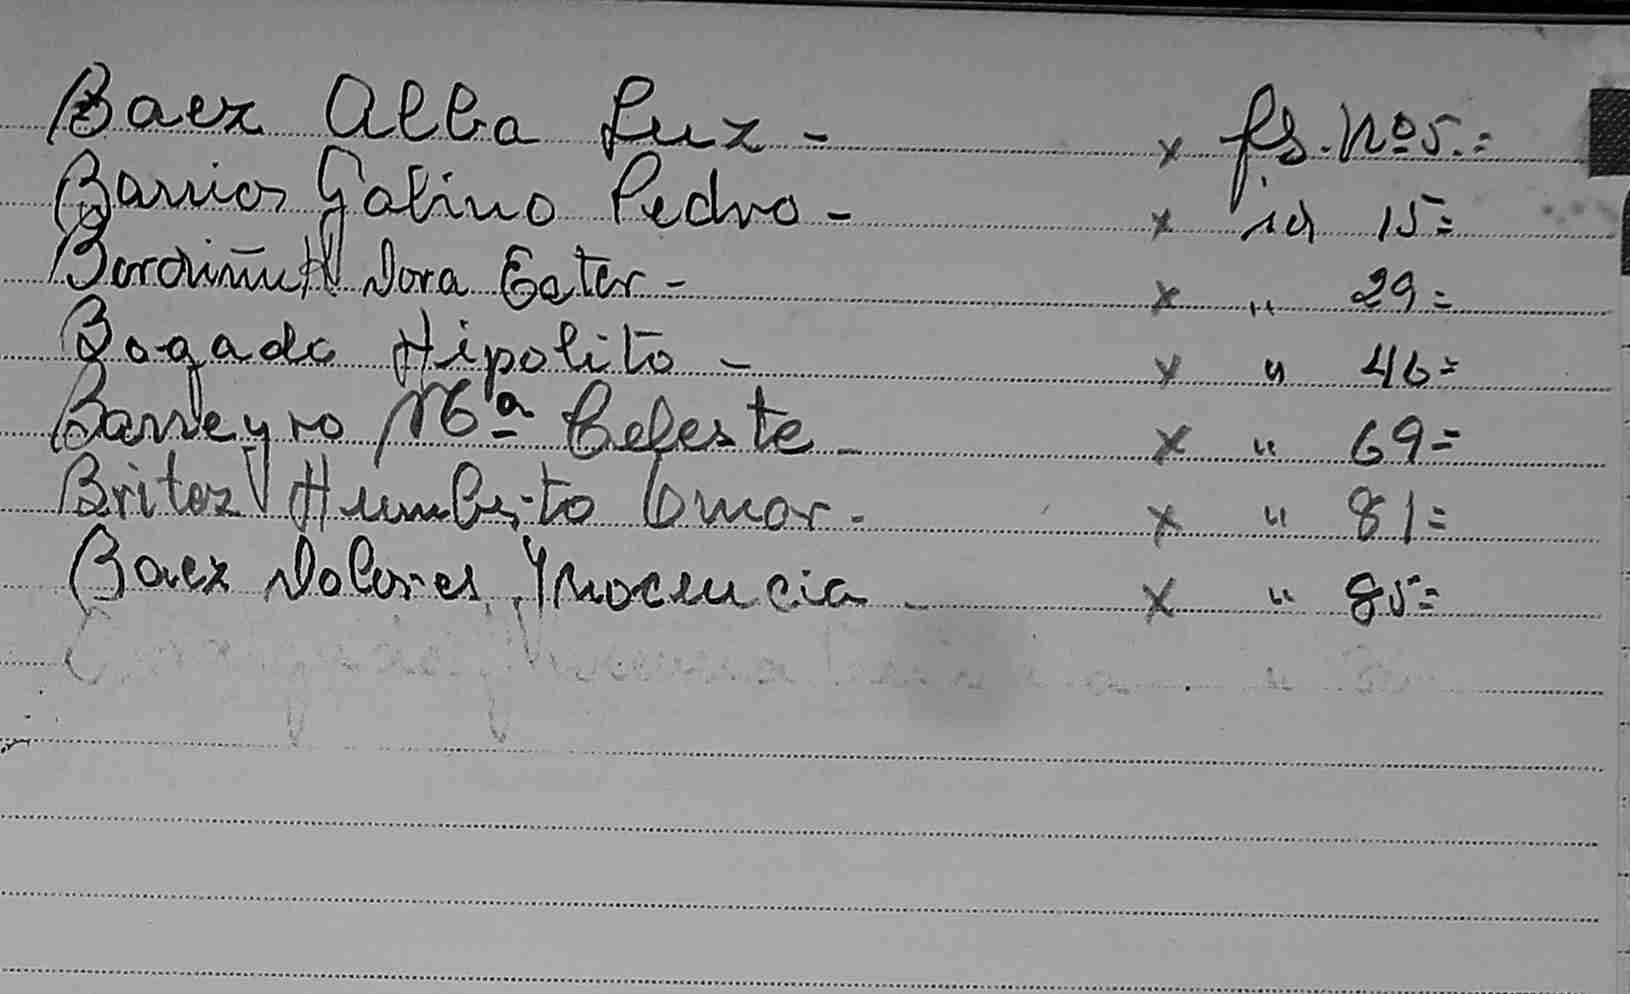 Baez Alba Luz - x fs. Nº 5.=
Barrios Galino Pedro - x id 15=
Dora Ester - x " 29=
Bogado Hipolito - x " 46=
Barreyro Mª Celeste - x " 69=
Britez Humberto Omar - x " 81=
Baez Dolores Ynocencia - x " 85=